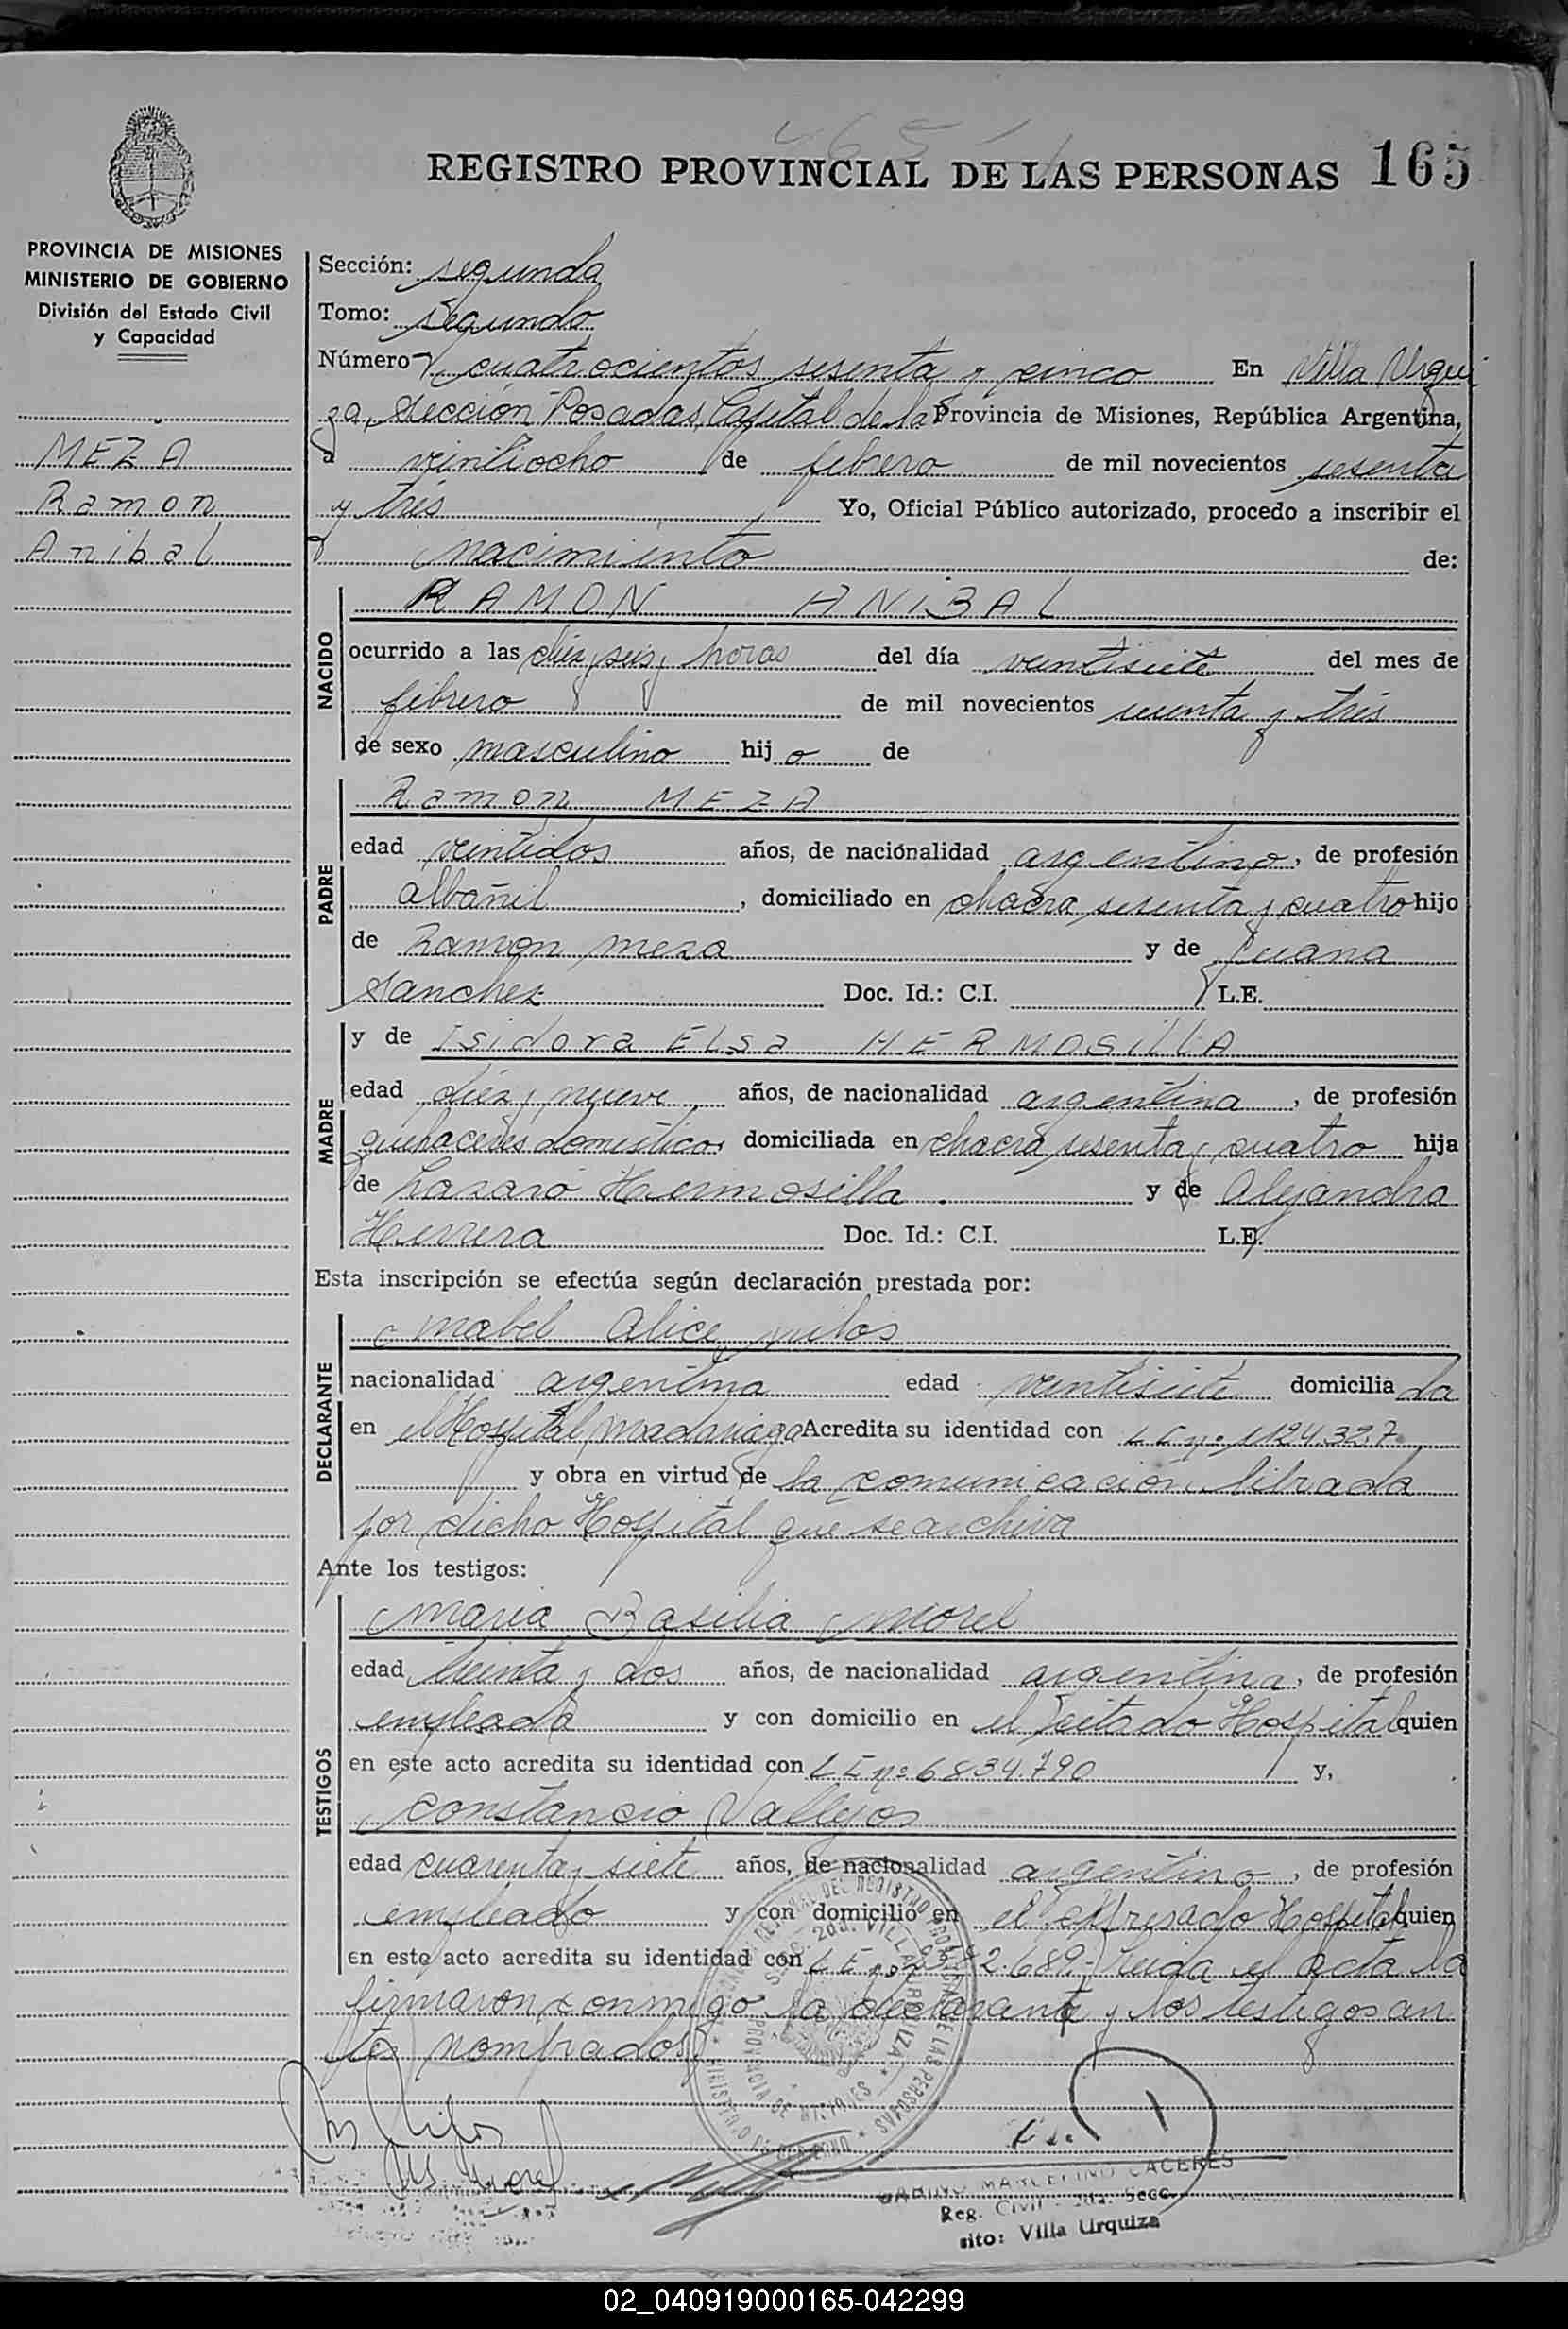 REGISTRO PROVINCIAL DE LAS PERSONAS 165
PROVINCIA DE MISIONES
MINISTERIO DE GOBIERNO
División del Estado Civil
y Capacidad
MEZA
Ramon
Anibal
Sección: segunda
Tomo: Segundo
Número cuatrocientos sesenta y cinco En Villa Urqui
za, Sección Posadas, Capital de la Provincia de Misiones, República Argentina,
a veintiocho de febrero de mil novecientos sesenta
y tres Yo, Oficial Público autorizado, procedo a inscribir el
nacimiento de:
NACIDO
RAMON ANIBAL
ocurrido a las diez y seis horas del día veintisiete del mes de
febrero de mil novecientos sesenta y tres
de sexo masculino hijo de
PADRE
Ramon MEZA
edad veintidos años, de nacionalidad argentino, de profesión
albañil, domiciliado en chacra sesenta y cuatro hijo
de Ramon Meza y de Juana
Sanchez Doc. Id.: C.I. L.E.
MADRE
y de Isidora Elsa HERMOSILLA
edad diez y nueve años, de nacionalidad argentina, de profesión
quehaceres domesticos domiciliada en chacra sesenta y cuatro hija
de Lazaro Hermosilla y de Alejandra
Herrera Doc. Id.: C.I. L.E.
Esta inscripción se efectúa según declaración prestada por:
DECLARANTE
Mabel Alice Milos
nacionalidad argentina edad veintisiete domiciliada
en el Hospital Madariaga Acredita su identidad con L C nº 1124.327
y obra en virtud de la comunicación librada
por dicho Hospital que se archiva
Ante los testigos:
TESTIGOS
Maria Basilia Morel
edad treinta y dos años, de nacionalidad argentina, de profesión
empleada y con domicilio en el citado Hospital quien
en este acto acredita su identidad con L C nº 6834.790 y,
Constancio Vallejos
edad cuarenta y siete años, de nacionalidad argentino, de profesión
empleado y con domicilio en el expresado Hospital quien
en este acto acredita su identidad con L E nº 2.689.- Leida el acta la
firmaron conmigo la declarante y los testigos an
tes nombrados
MARCELINO CACERES
Reg. Civil 2da. Secc.
sito: Villa Urquiza
02_040919000165-042299